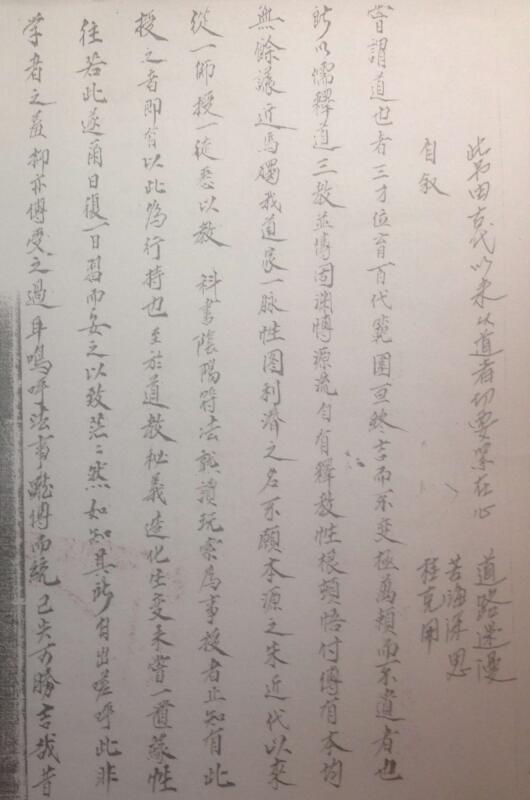 此书由古代以来从道者切要紧在心 道路遥漫
苦海深思
自叙 程克用
尝谓道也者三才位育百代範圍亘终古而不变极萬類而不遺者也
所以儒釋道三教並傳固渊博源流自有釋教性根頓悟付傳有本均
無餘議近焉獨我道家一脉性圖利濟之名不顧本源之失近代以來
從一師授一徒悉以教 科書陰陽符法熟讀玩索爲事授者止知有此
授之者即自以此爲行持也至於道教秘義造化生变未嘗一置蘇性
往若此遂尔日復一日習而安之以致茫茫然如知其所自出嗟呼此非
学者之羞抑亦傳受之過耳嗚呼法事雖傳而統已失可勝言哉昔